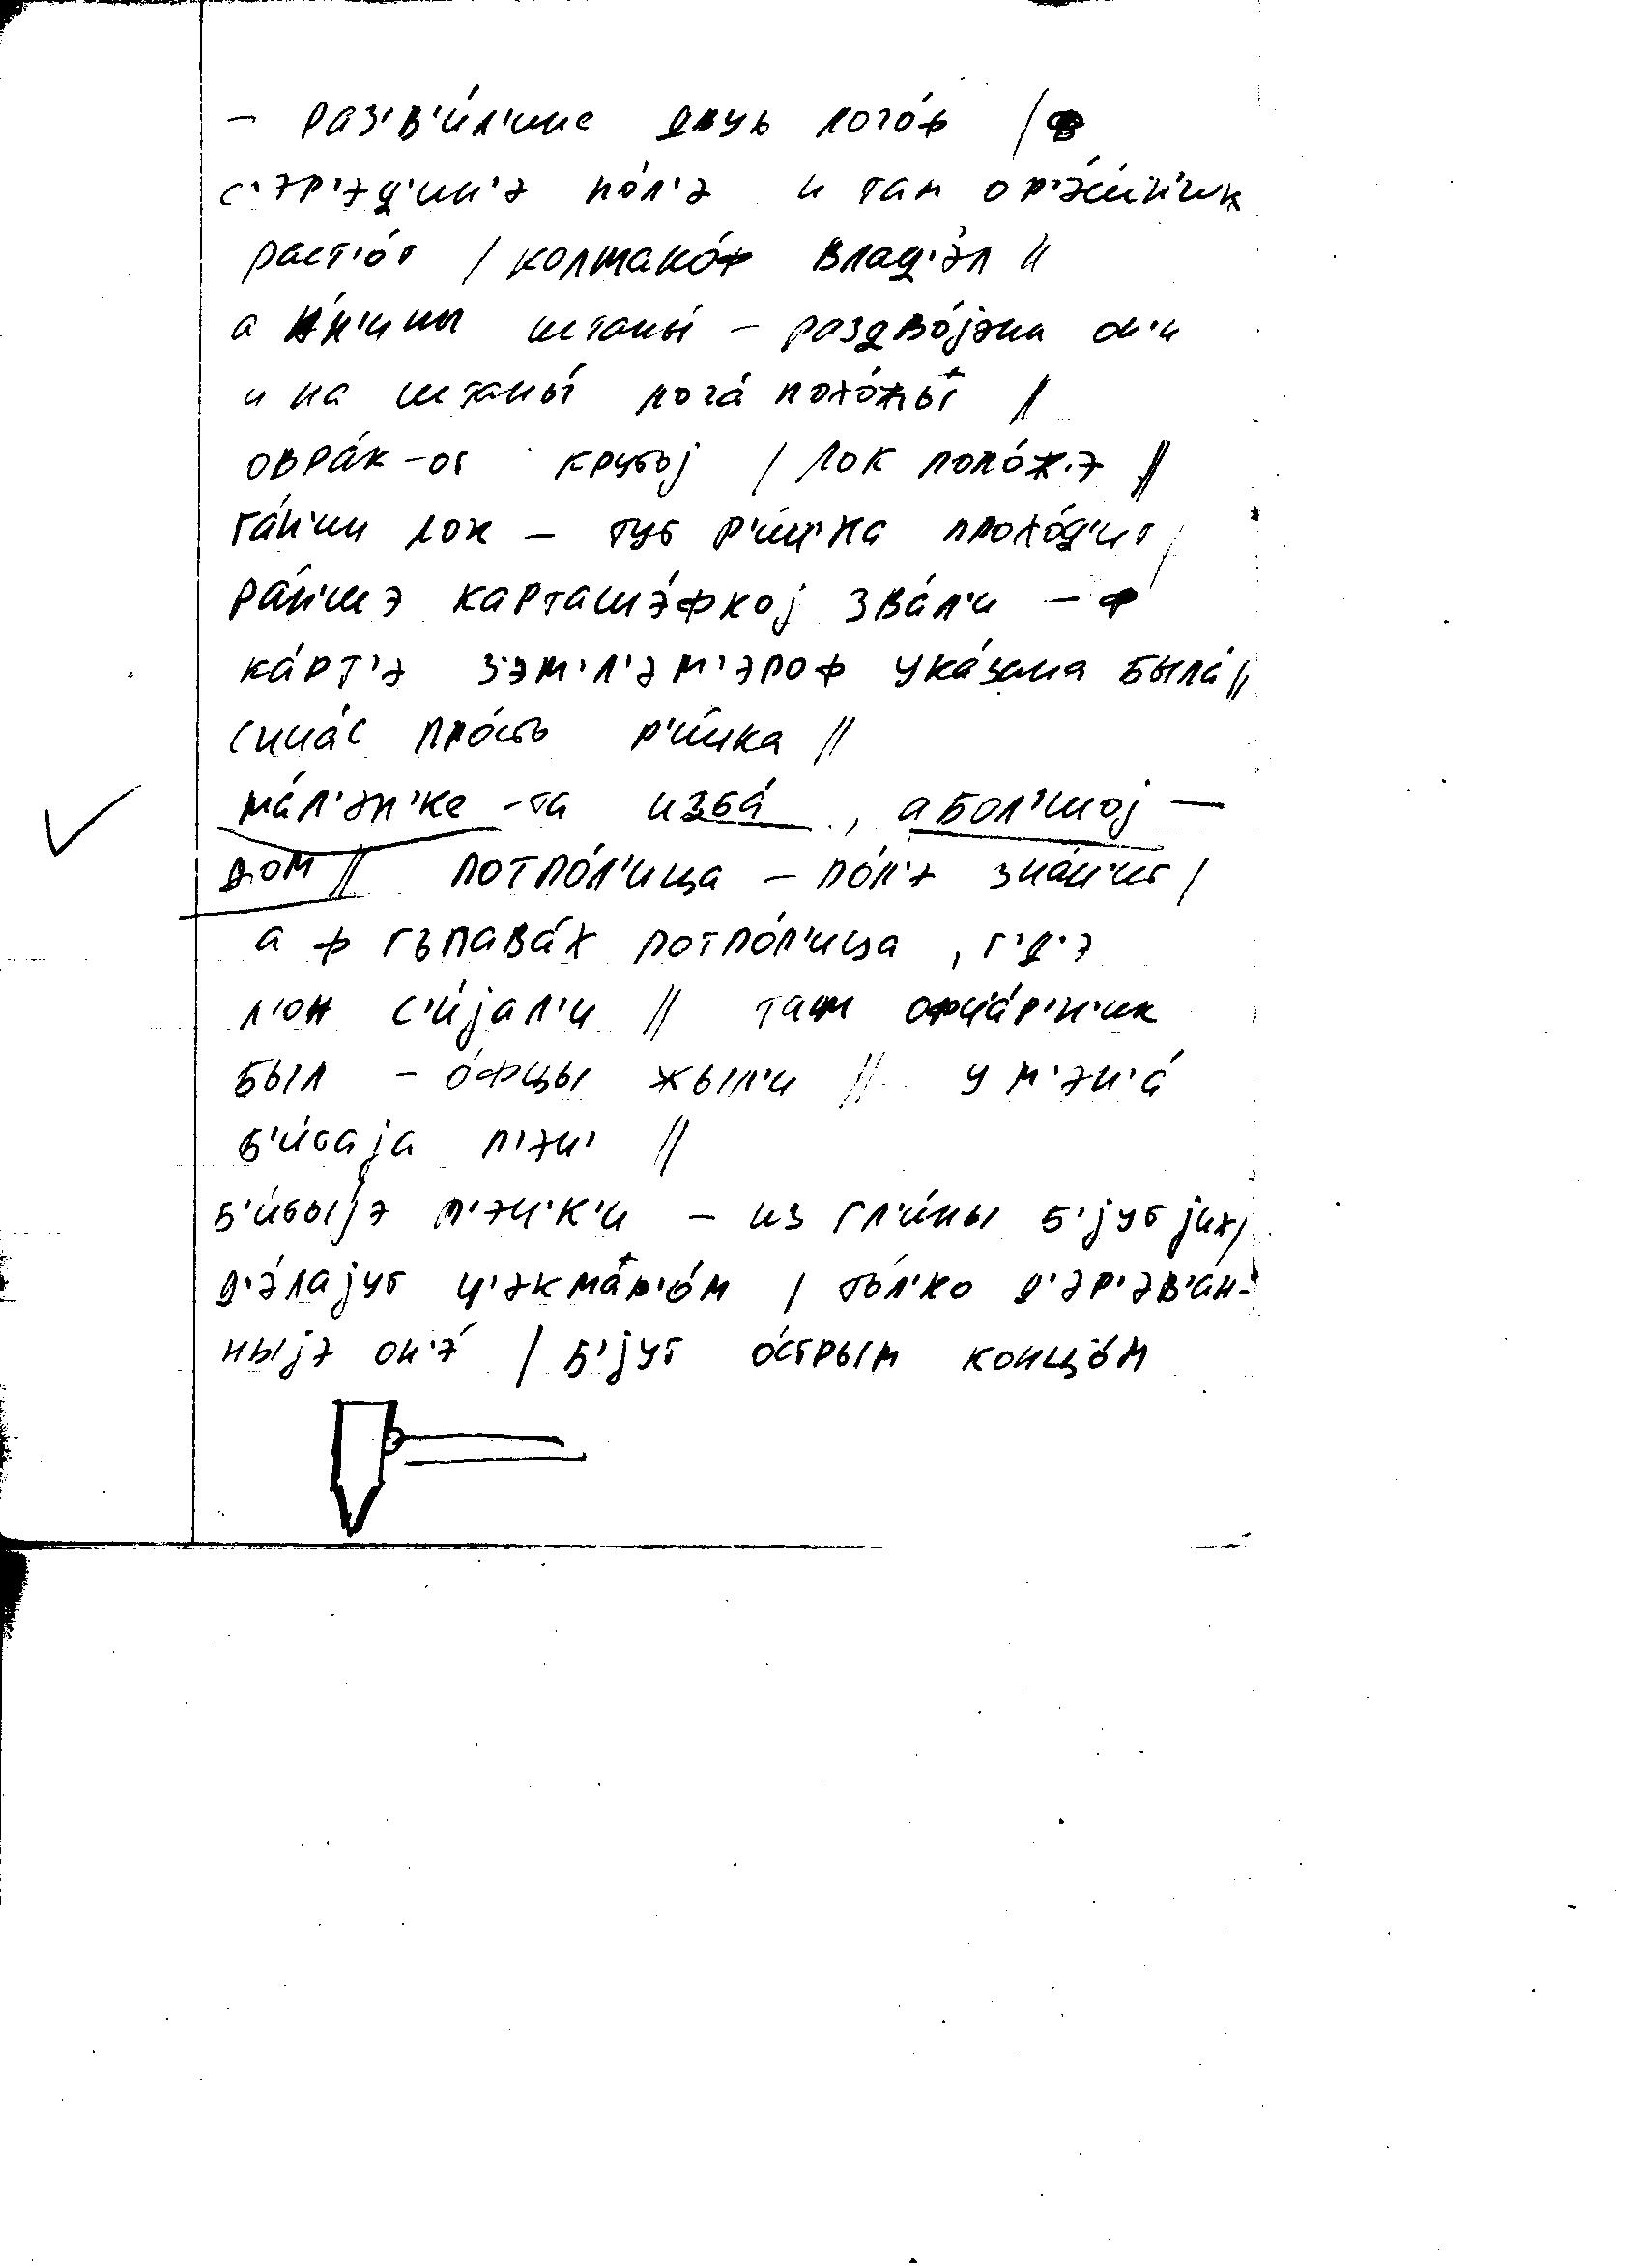 – раз'в'и́л'ине двуь лого́ф / ф
с'эр'эд'ин'э по́л'э и там
раст'о́т / колмако́ф влад'э́л //
а а́н'ины штаны́ – раздво́јэна
и на штаны́ лога́ похо́жы //
овра́к-от крутој / лок поло́ж'э //
та́н'ин лок – тут р'и́ч'ка прохо́д'ит /
ра́н'шэ карташэ́фкој зва́л'и – ф
ка́рт'э з'эм'л'эм'эроф ука́зана была́ //
сича́с про́сть р'и́чка //
ма́л'эн'ке -та изба́, а бол'шој –
дом // потпо́л'ица – по́л'э зна́ч'ит /
а ф гълава́х потпо́л'ица, г'д'э
л'он с'и́јал'и // там офча́р'н'ик
был – о́фцы жыл'и // у м'эн'а́
б'и́таја п'эч' //
б'и́тыјэ п'эч'к'и – из гл'и́ны б'јут јих /
д'э́лајут ч'экмар'о́м / то́л'ко д'эр'эв'а́н-
ныјэ он'э́ / б'јут о́стрым концо́м